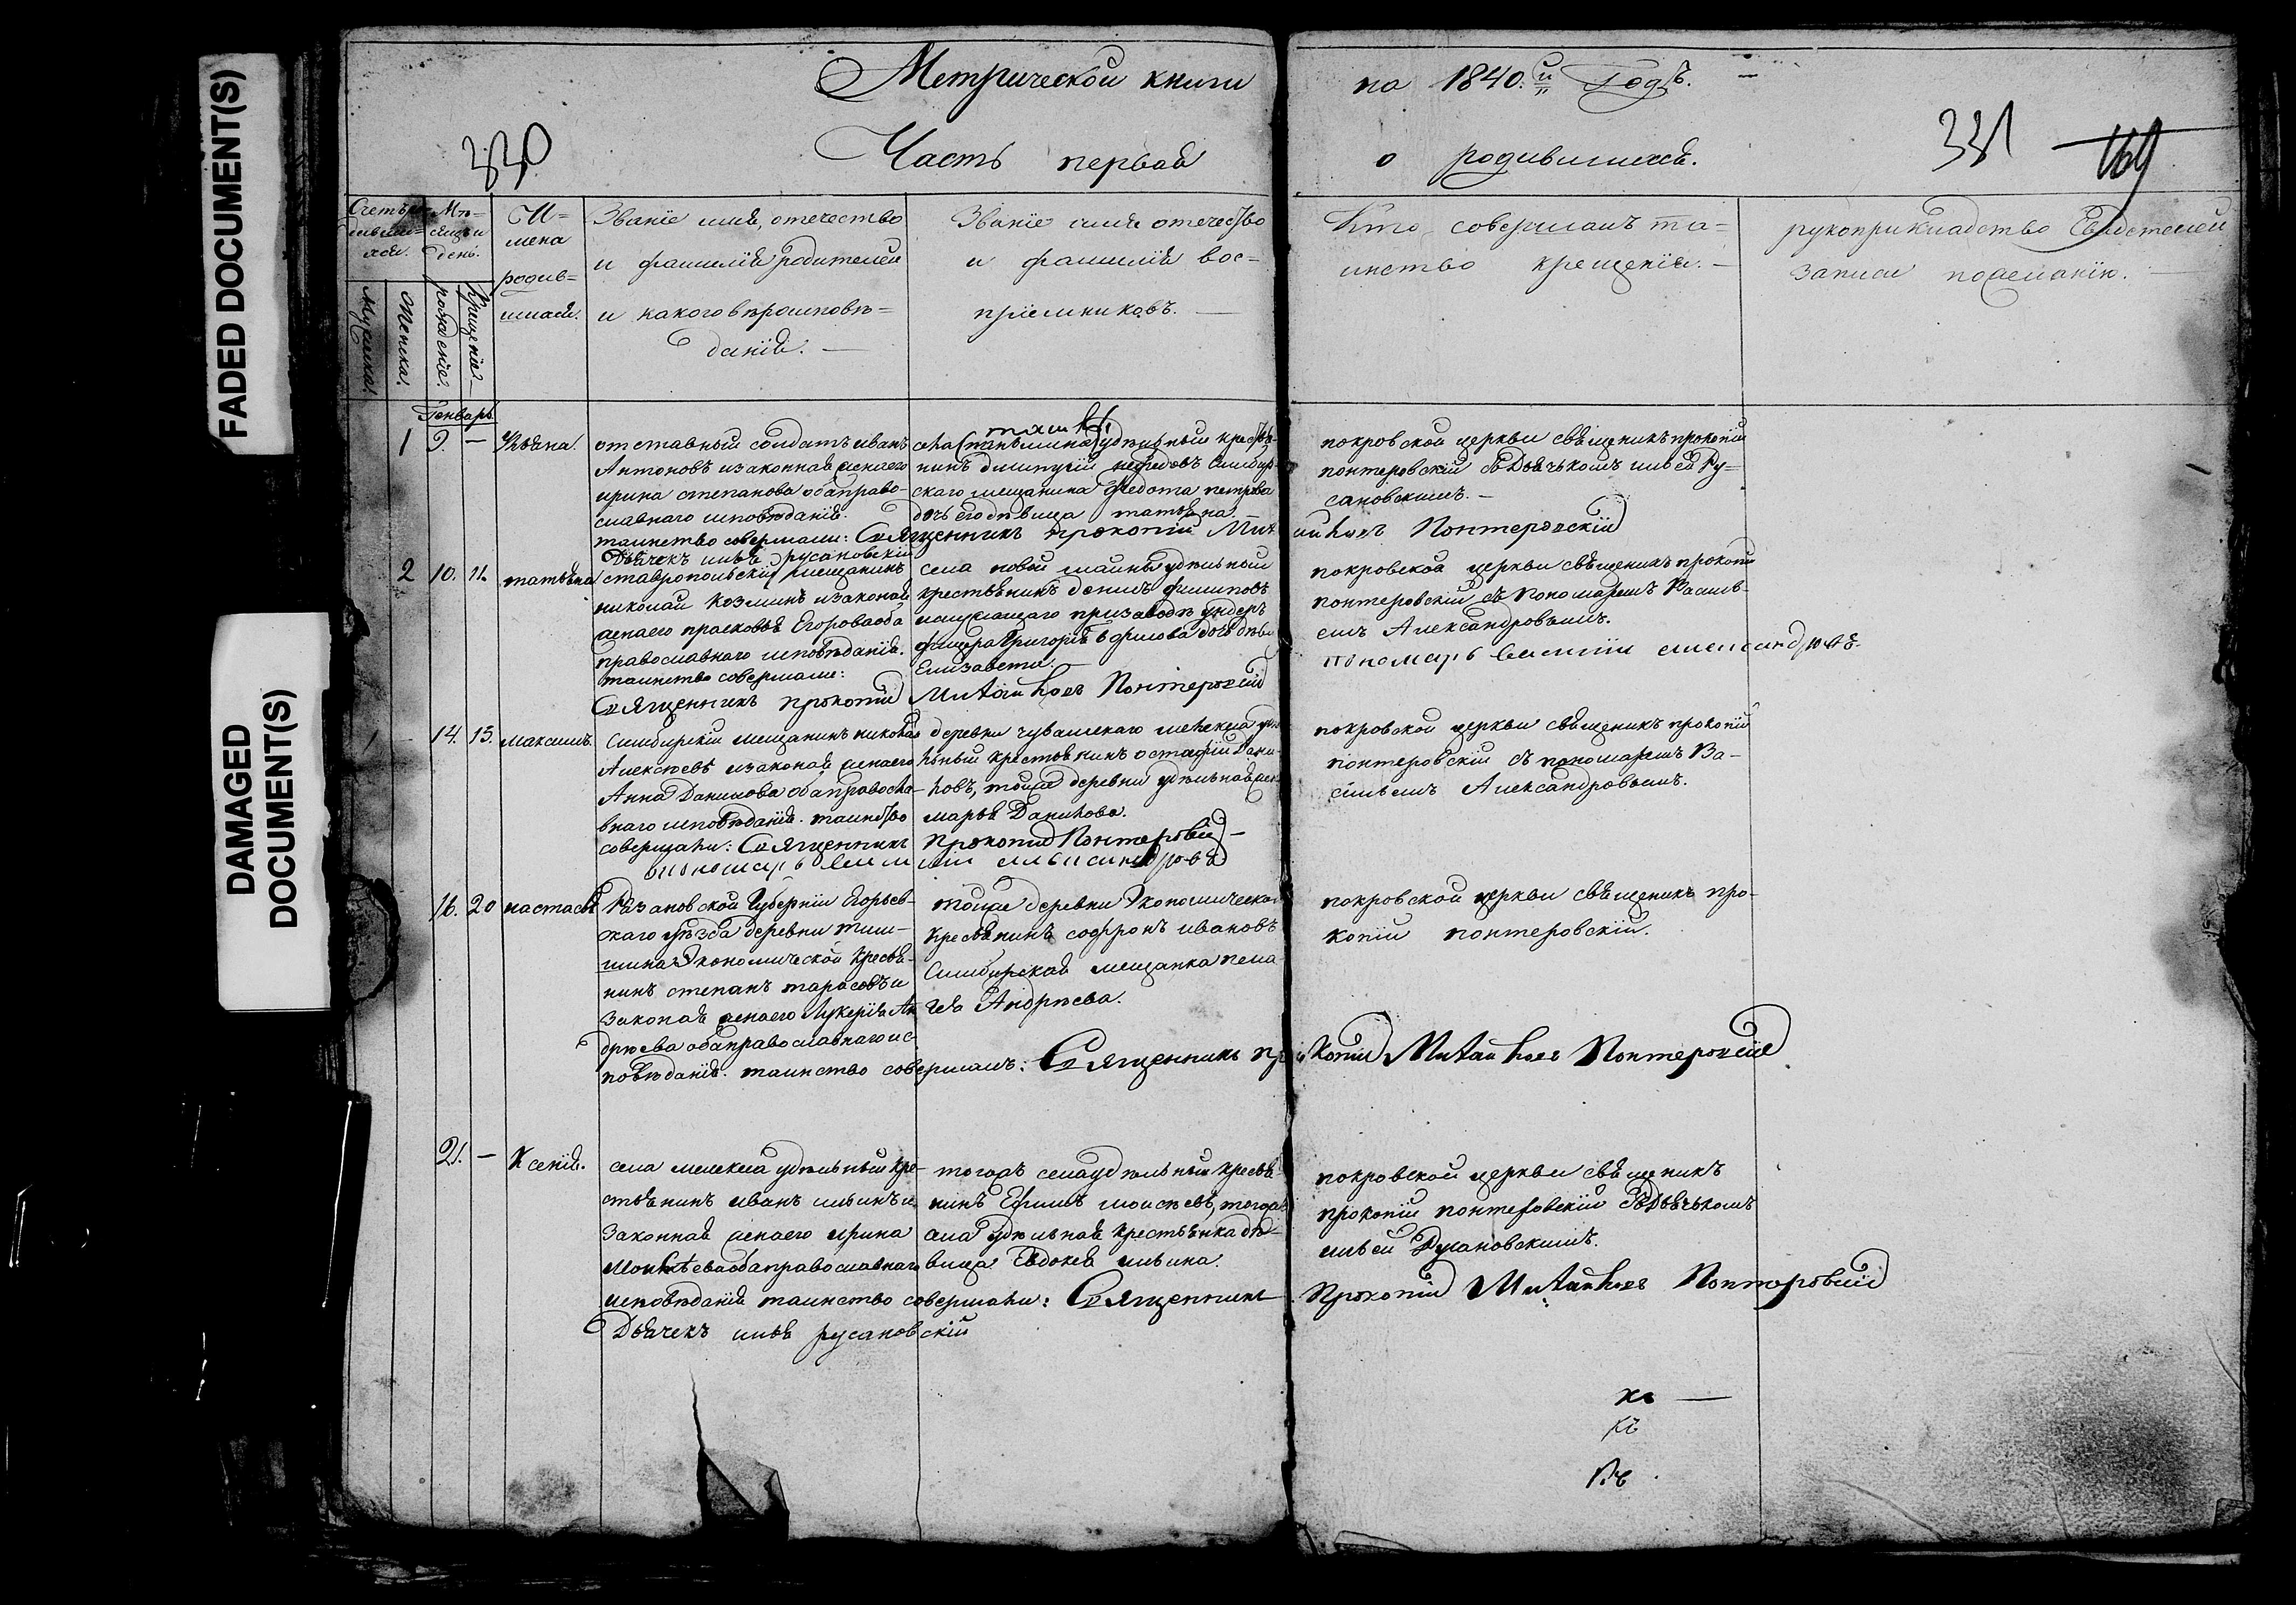 FADED DOCUMENT(S)
DAMAGED
DOCUMENT(S)
Метрической книги
на 1840.й Годъ.
330
Часть первая
о родившихся.
331
169
Мѣ-
сяцъ и
день.
И-
мена
родив-
шихся.
Званіе имя, отечество
и фамилія родителей
и какого вѣроисповѣ-
данія.
Званіе имя отечество
и фамилія вос-
пріемниковъ.
Кто совершалъ та-
инство крещенія.
рукоприкладство свидетелей
записи по желанію.
Мужска.
Женска.
рожденіе.
крещеніе.
Генварь
1 9. —
отставный солдатъ иванъ
Антоновъ изаконная женаего
ирина степанова обаправо-
славнаго исповѣданія.
таинство совершали: Священникъ прокопій
Понтеровскій
Дьячекъ илья русановскій
удѣльный кресть-
нинъ димитрій нефедовъ Симбир-
скаго мещанина федота петрова
дочь его дѣвица татьяна.
покровской церкви священикъ прокопій
понтеровскій съ Дьячькомъ ильей Ру-
сановскимъ.
2 10. 11. татьяна
ставропольскій мещанинъ
николай козминъ изаконая
женаего прасковья Егороваоба
православнаго исповѣданія.
таинство совершали:
Священникъ прокопій
Понтеровскій
села новой майны удѣльный
крестьянинъ данилъ филиповъ
Елизавета.
покровской церкви священикъ прокопій
понтеровскій съ Пономаремъ Василь-
емъ Александровымъ.
пономарь василій александровъ
14. 15. Максимъ.
Симбирскій мещанинъ николай
Алексѣевъ изаконая женаего
Анна Данилова обаправосла-
внаго исповѣданія. таинство
совершали: Священникъ
Прокопій Понтеровскій
пономарь василій александровъ
деревни чувашскаго мелекеса удѣ-
льный крестьянинъ остафій Дани-
ловъ, тойже деревни удѣльная
марья Данилова.
покровской церкви священикъ прокопій
понтеровскій съ пономаремъ Ва-
сильемъ Александровымъ.
16. 20 настасья
Рязановской Губерніи Егорьев-
скаго уѣзда деревни тим-
шина Экономической кресья-
нинъ степанъ тарасовъ и
законая женаего Лукерія Ан
дрѣева обаправославнаго ис-
повѣданія. таинство совершалъ: Священникъ прокопій
Понтеровскій
тойже деревни Экономической
кресьянинъ софронъ ивановъ
Симбирская мещанка пела
гея Андрѣева.
покровской церкви священикъ про-
копій понтеровскій.
21. — Ксенія.
села мелекеса удѣльный кре-
стьянинъ иванъ ильинъ и
законная женаего ирина
обаправославнаго
исповѣданія таинство совершали: Священникъ
Прокопій
Понтеровскій
Дьячекъ илья русановскій
тогожъ села удѣльный кресья-
нинъ Ефимъ моисѣевъ, тогожъ
села удѣльная крестьянка дѣ-
вица Евдокея ильина.
покровской церкви священикъ
прокопій понтеровскій съ Дьячькомъ
ильей Русановскимъ.